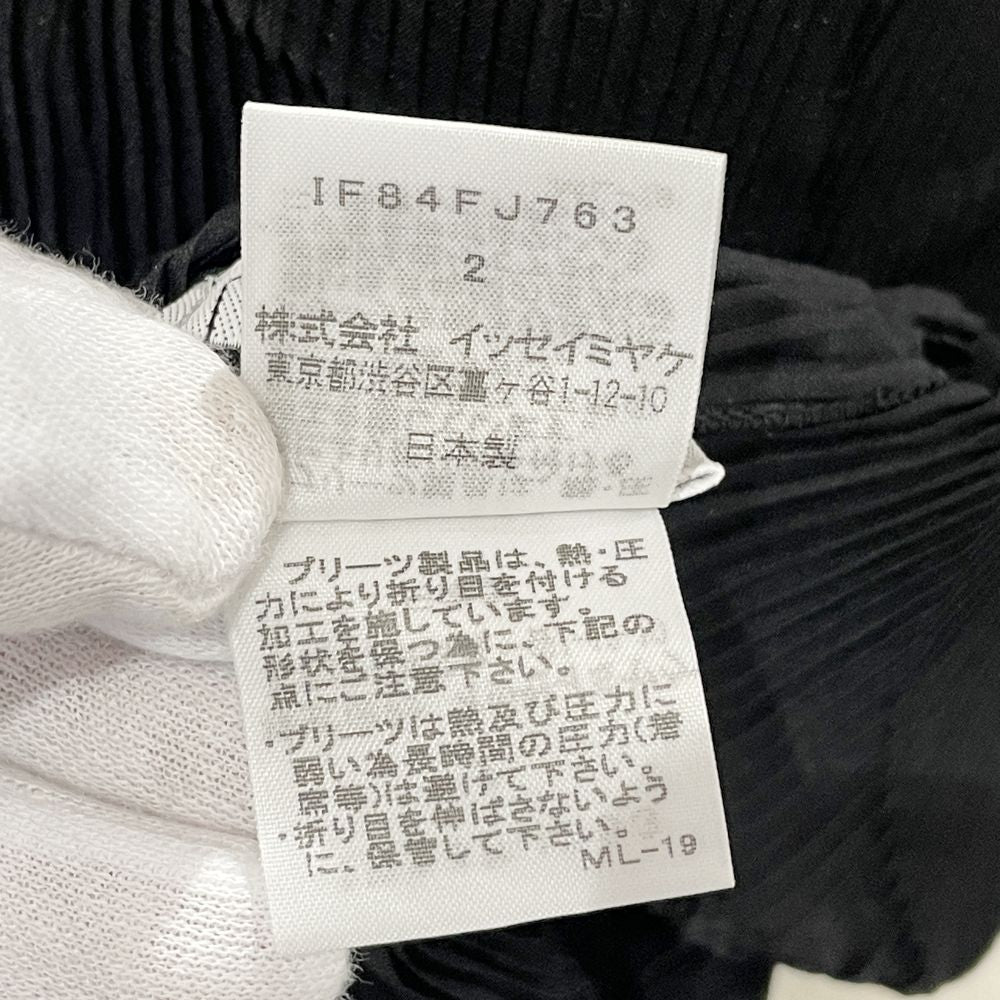 IF84FJ763
2
株式会社 イッセイミヤケ
東京都渋谷区富ヶ谷1-12-10
日本製
プリーツ製品は、熱・圧
力により折り目を付ける
加工を施しています。
形状を保つ為に、下記の
点にご注意下さい。
・プリーツは熱及び圧力に
弱い為長時間の圧力(着
席等)は避けて下さい。
・折り目を伸ばさないよう
に、保管して下さい。
ML-19